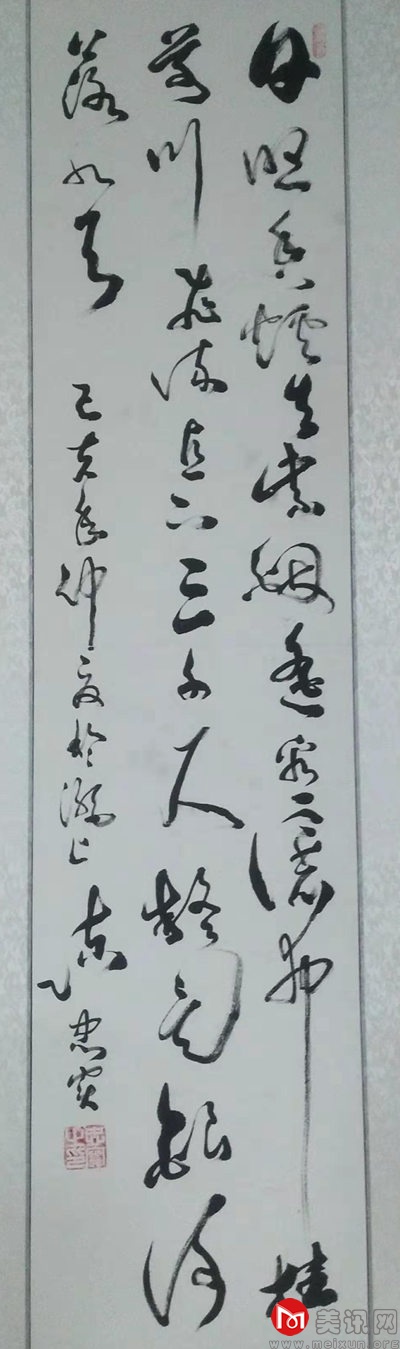 日照香爐生紫烟遥看瀑布挂
前川飛流直下三千尺疑是銀河
落九天
己亥年仲夏於上
忠实
美讯网
www.meixun.org